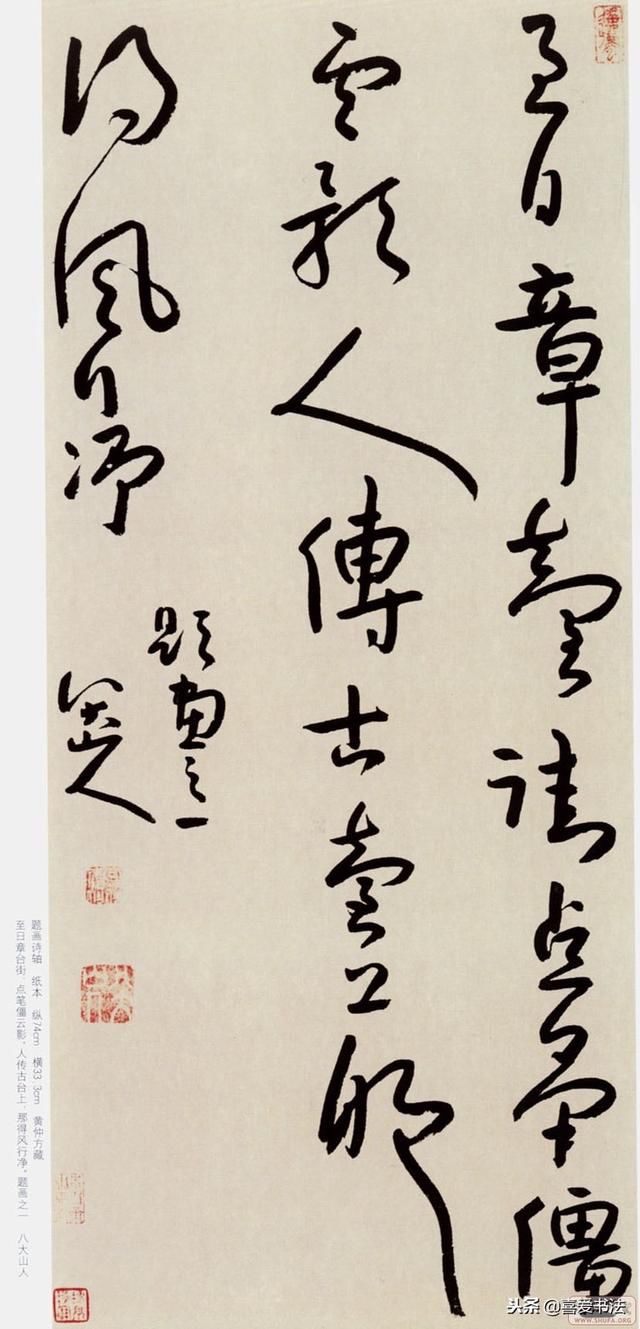 至日章臺街點筆僵
雲影人傳古臺上那
得風行淨
題畫之一
八大山人
题画诗轴 纸本 纵74cm 横33.3cm 黄仲方藏
至日章台街，点笔僵云影。人传古台上，那得风行净。题画之一 八大山人
头条 @喜爱书法
WWW.SHUFA.ORG